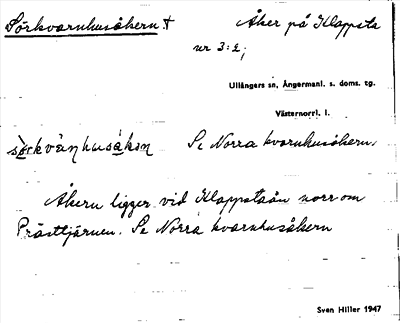 Sörkvarnhusåkern †
Åker på Klappsta
nr 3:2;
Ullångers sn, Ångermanl. s. doms. tg.
Västernorrl. l.
Se Norra kvarnhusåkern.
Åkern ligger vid Klappstaån norr om
Prästtjärnen. Se Norra kvarnhusåkern
Sven Hiller 1947